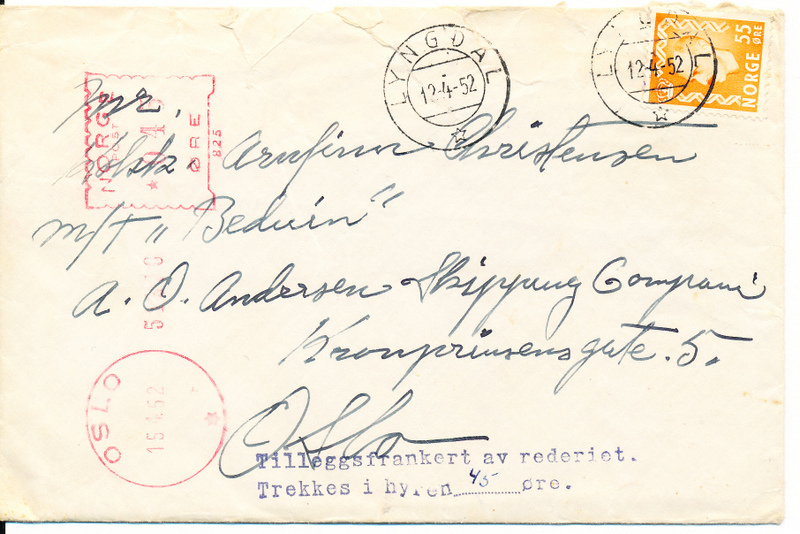 LYNGDAL
12-4-52
LYNGDAL
12-4-52
55 ØRE
NORGE
NORGE
POST
ØRE
825
Arnfinn Christensen
m/t „Beduin“
A. O. Andersen Shipping Compani
Kronprinsensgate. 5.
Oslo
OSLO
15.4.52
Tilleggsfrankert av rederiet.
Trekkes i hyren 45 øre.